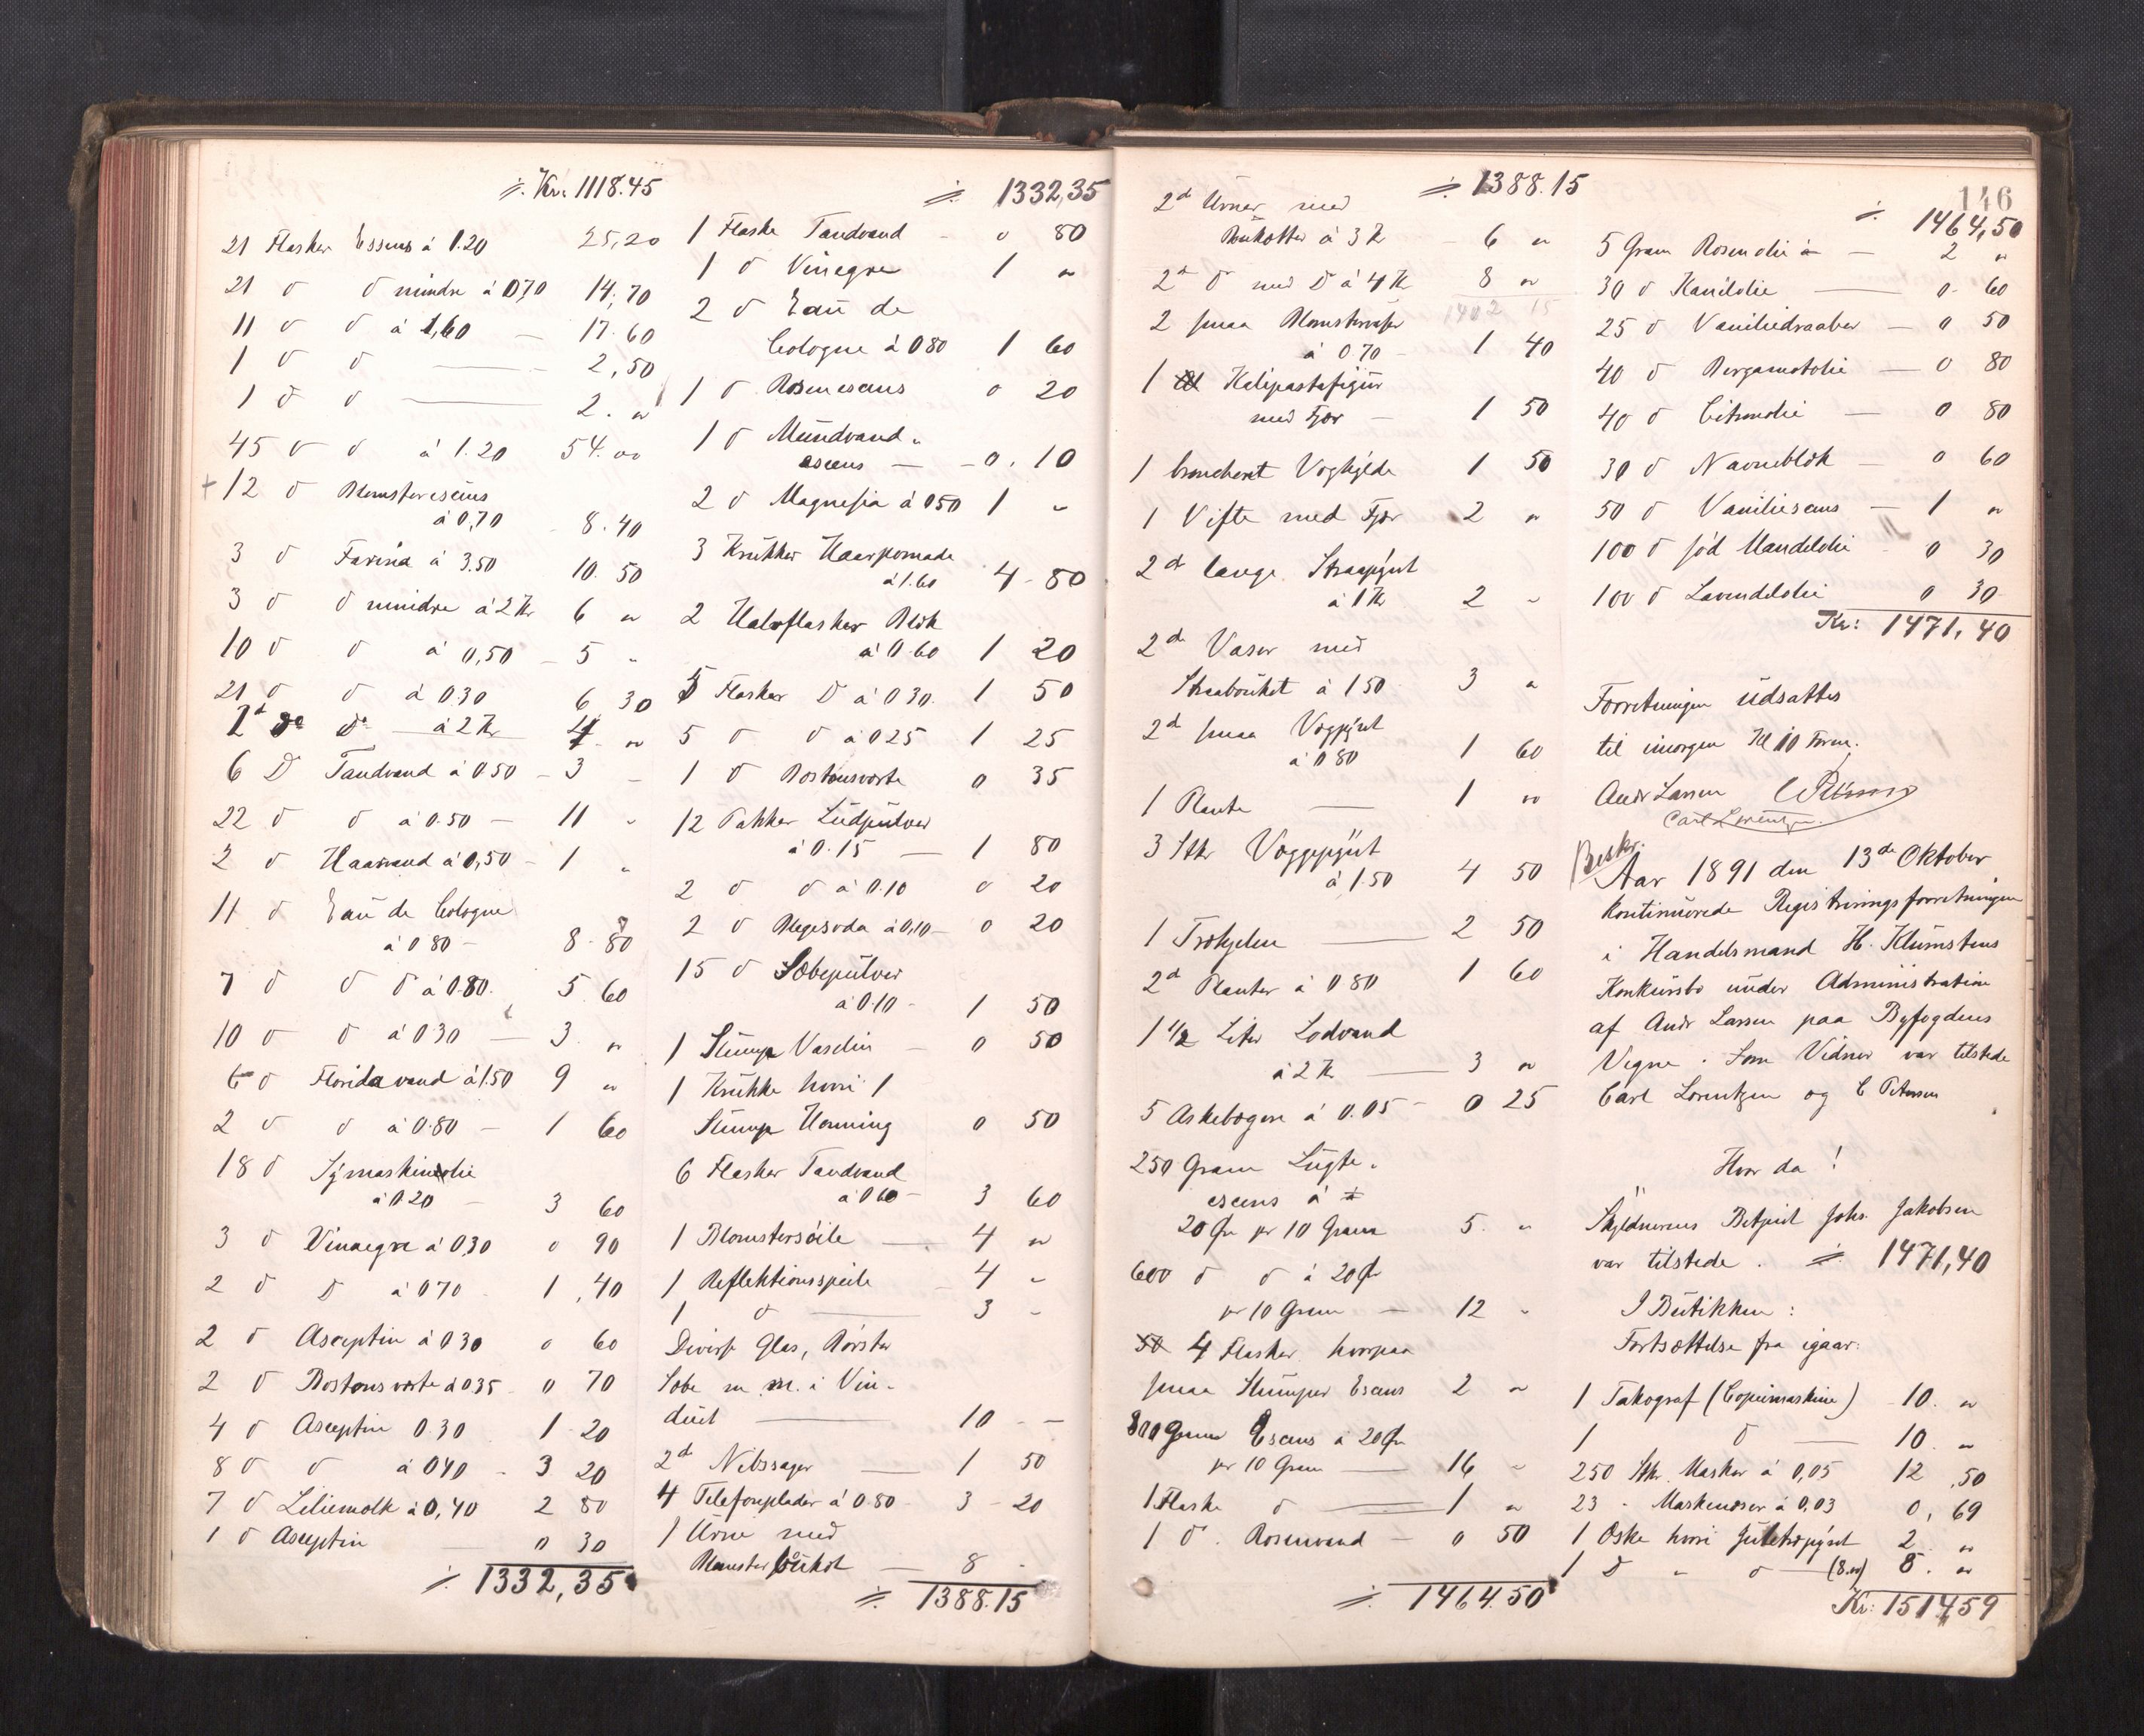 ÷. Kr. 1118.45
21 Flasker Essens á 1.20 25,20
21 d d mindre á 0,70 14,70
11 d d á 1,60 — 17.60
1 d d — 2,50
1 d d — 2. "
45 d d á 1.20 54.00
+ 12 d Blomsteresens
á 0,70 8.40
3 d Farina á 3.50 10.50
3 d d mindre á 2 Kr 6 "
10 d d á 0,50 — 5 "
21 d d á 0.30 6 30
2d do do á 2 Kr 4 "
6 D Tandvand á 0 50 — 3 —
22 d d á 0.50 — 11 "
2 d Haarvand á 0,50 — 1 "
11 d Eau de Cologne
á 0 80 — 8.80
7 d d d á 0.80. 5.60
10 d d á 0 30 — 3. "
6 d Florida vand á 1.50 9 "
2 d d á 0.80 — 1 60
18 d Symaskinolie
á 0.20 — 3 60
3 d Vinaegre á 0,30 0 90
2 d D á 0 70 1,40
2 d Aseptin á 0 30 0 60
2 d Bostonsvorte á 0 35 0 70
4 d Aseptin 0.30 1 20
8 d d á 0 40 — 3 20
7 d Liliemelk á 0,40 2 80
1 d Aseptin — 0 30
÷ 1332,35
÷ 1332,35
1 Flaske Tandvand — 0 80
1 d Vinegre 1 "
2 d Eau de
Cologne á 0 80 1 60
1 d Rosenesens 0 20
1 d Mundvand-
esens — 0.10
2 d Magnesia á 0 50 1 "
3 Krukker Haarpomade
á 1.60 4.80
2 Halvflasker Blæk
á 0.60 1 20
5 Flasker D á 0 30. 1 50
5 d d á 0 25 1 25
1 d Bostonsvorte 0 35
12 Pakker Ludpulver
á 0.15 — 1 80
2 d d á 0.10 0 20
2 d Blegesoda á 0,10 — 0 20
15 d Sæbepulver
á 0.10 — 1 50
1 Stump Vaselin — 0 50
1 Krukke hvori 1
Stump Honning 0 50
6 Flasker Tandvand
á 0 60 — 3 60
1 Blomstersöile — 4 "
1 Reflektionsspeile 4 "
1 d — 3 "
Diverse Glas, Börster
Sæbe m. m. i Vin-
duet — 10 - —
2d Nibssager — 1 50
4 Telefonplader á 0.80 3 - 20
1 Urne med
Blomsterbuket — 8 "
÷ 1388.15
÷ 1388.15
2d Urner med
Bouketter á 3 K — 6 "
2d d med D á 4 Kr 8 "
1402 15
2 smaa Blomstervaser
á 0.70 — 1 40
1 Kalipastafigur
med Fjær — 1 50
1 broncheret Væghylde 1 50
1 Vifte med Fjær 2 "
2d lange Straapynt
á 1 Kr 2 "
2d Vaser med
Straabouket á 1 50 3 "
2d smaa Vægpynt
á 0 80 1 60
1 Plante — 1 "
3 Stk Væggepynt
á 1.50 4 50
1 — 2 50
2d Planter á 0 80 1 60
1 1/2 Liter Lodvand
á 2 Kr — 3 "
5 Askebægere á 0.05 — 0 25
250 Gram Lugte-
esens á
20 Øre pr 10 Gram 5. "
600 d d á 20 Ø
pr 10 Gram — 12 "
4 Flasker hvorpaa
smaa Stumper Esens 2 "
800 Gram Esens á 20 Ø
pr 10 Gram — 16 "
1 Flaske d — 1 "
1 d. Rosenvand — 0 50
÷ 1464.50
146
÷ 1464,50
5 Gram Rosenolie á — 2 "
30 d Kanilolie — 0 60
25 d Vaniliedraaber — 0 50
40 d Bergamotolie — 0 80
40 d Citronolie — 0 80
30 d Navneblæk — 0 60
50 d Vaniliesens — 1 "
100 d söd Mandelolie — 0 30
100 d Lavendelolie 0 30
Kr: 1471,40
Forretningen udsattes
til imorgen Kl 10 Form.
Andr Larsen
Carl Lorentzen.
Beskr.
Aar 1891 den 13de Oktober
kontinuerede Registreringsforretningen
i Handelsmand H. Klumstens
Konkursbo under Administration
af Andr Larsen paa Byfogdens
Vegne. Som Vidner var tilstede
Carl Lorentzen og C Petersen
Hvor da!
Skyldnerens Betjent Johs. Jakobsen
var tilstede. ÷ 1471,40
I Butikken:
Fortsættelse fra igaar:
1 Takograf (Copiermaskine) 10. "
1 d — 10. "
250 Stk. Masker á 0,05 12,50
23 " Maskenæser á 0,03 0,69
1 Æske hvori Juletræpynt 2. "
1 D " d — (8.00) 8. "
Kr: 1514,59